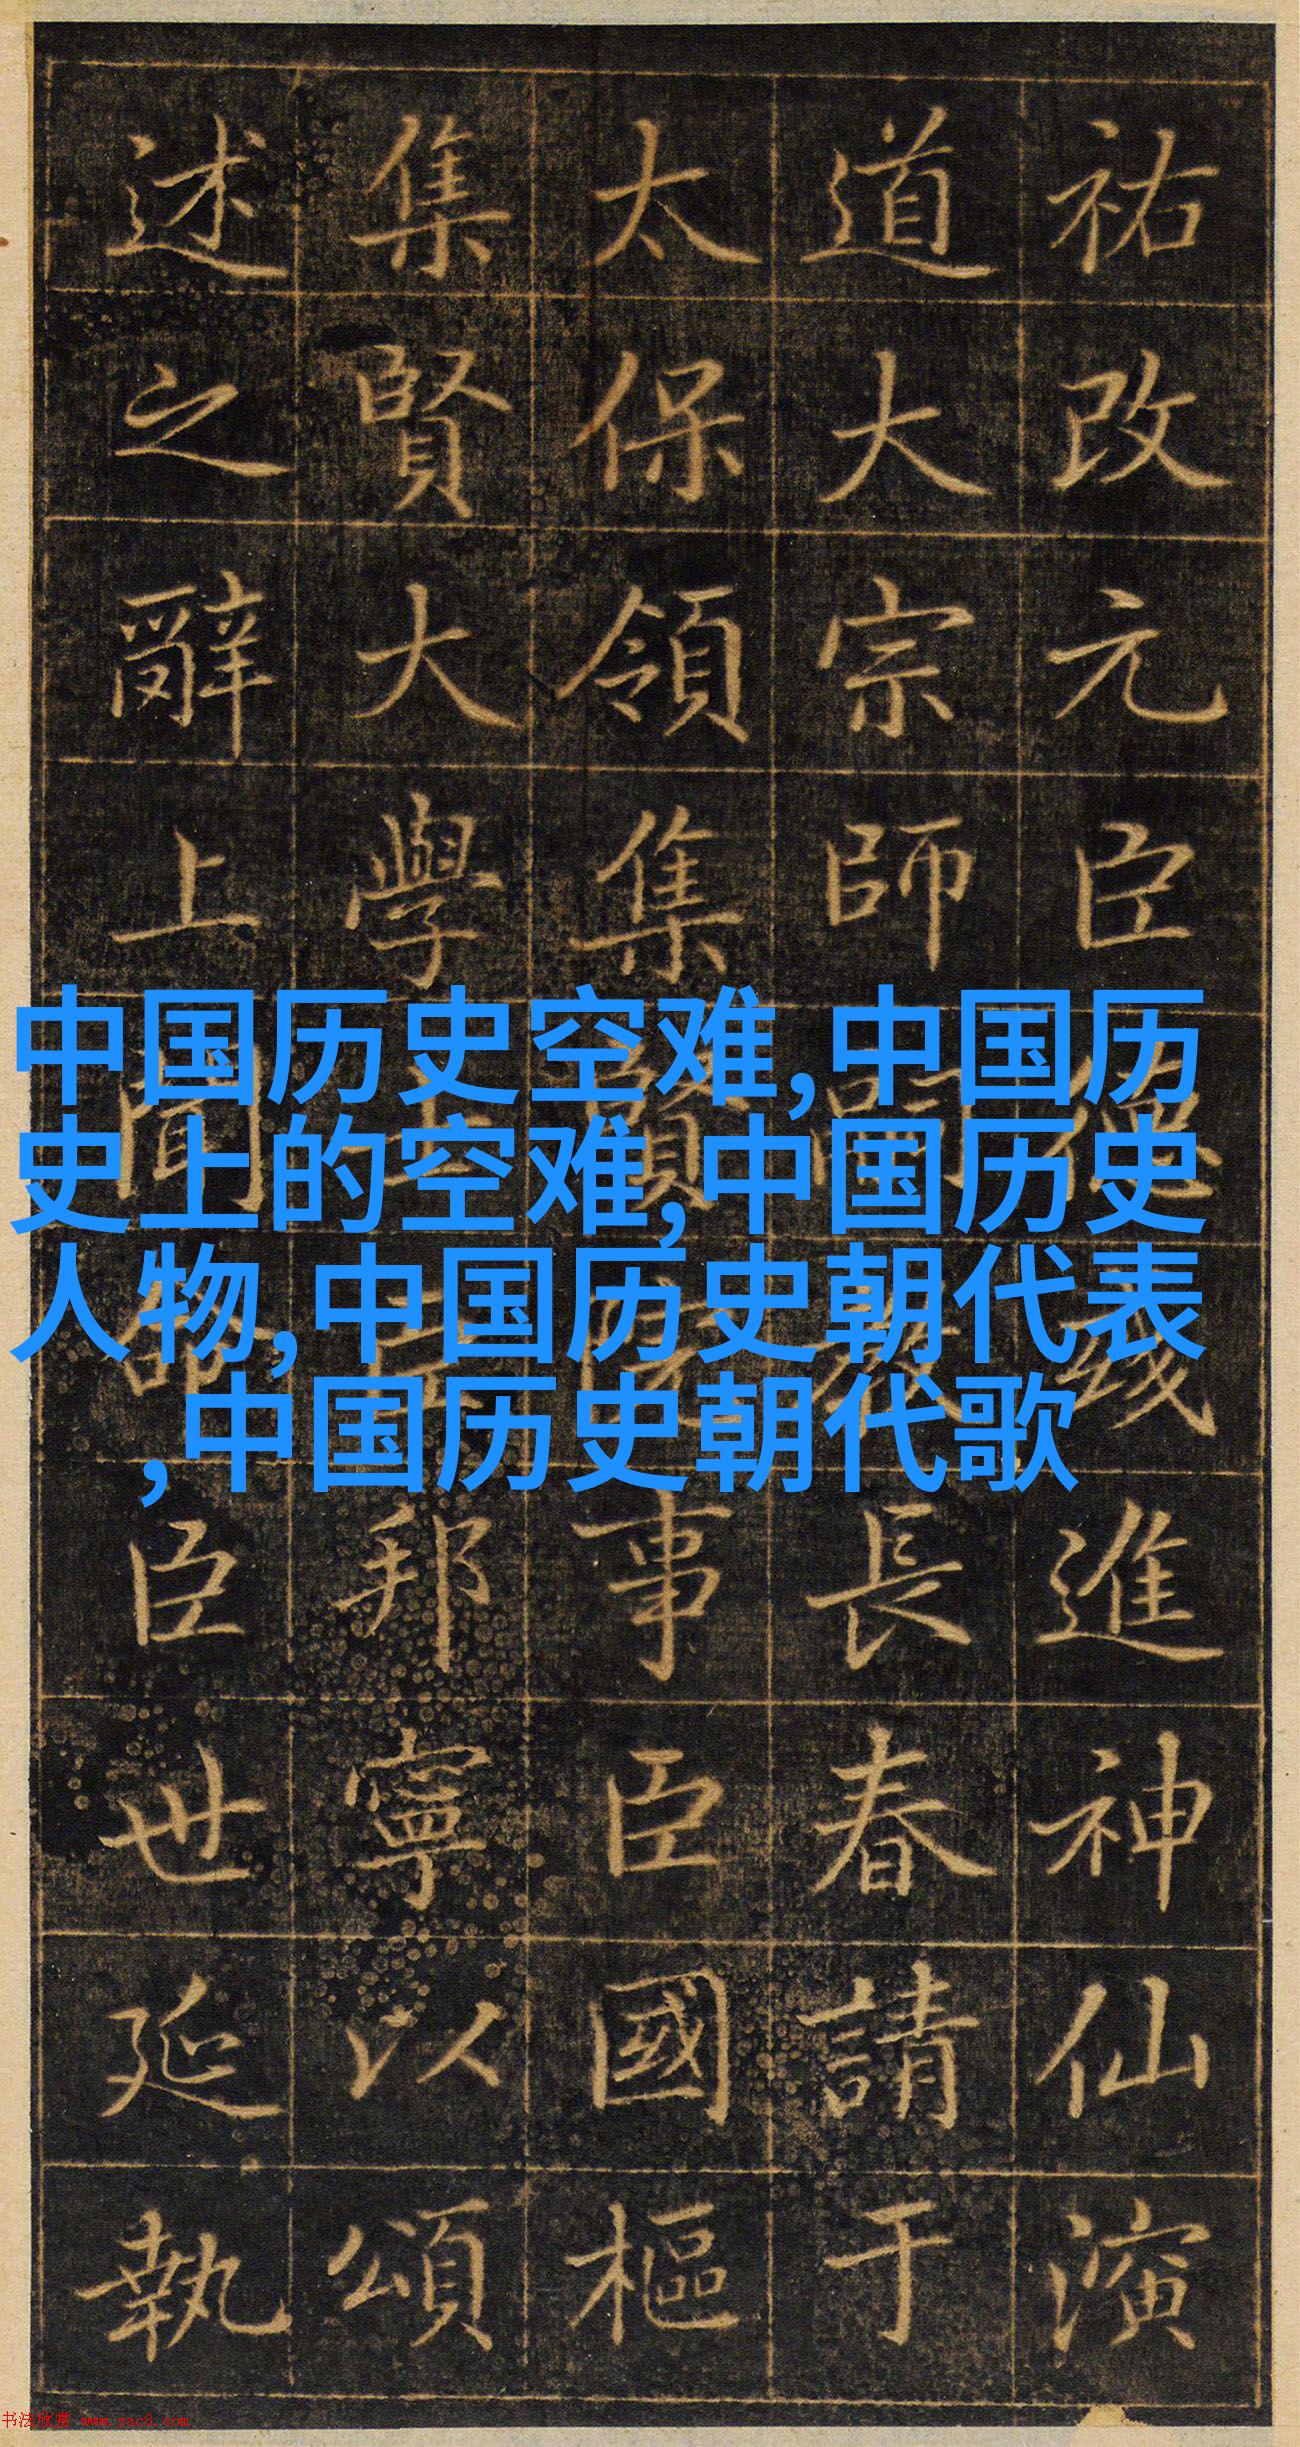 祐改元臣德彧進神仙演
道大宗師教長春請于
太保領集賢院事臣國樞
集賢大學士臣邦寧以頌
述之辭上聞命臣世延執
中国历史空难,中国历
史上的空难,中国历史
人物,中国历史朝代表
,中国历史朝代歌
书法欣赏 www.yac8.com